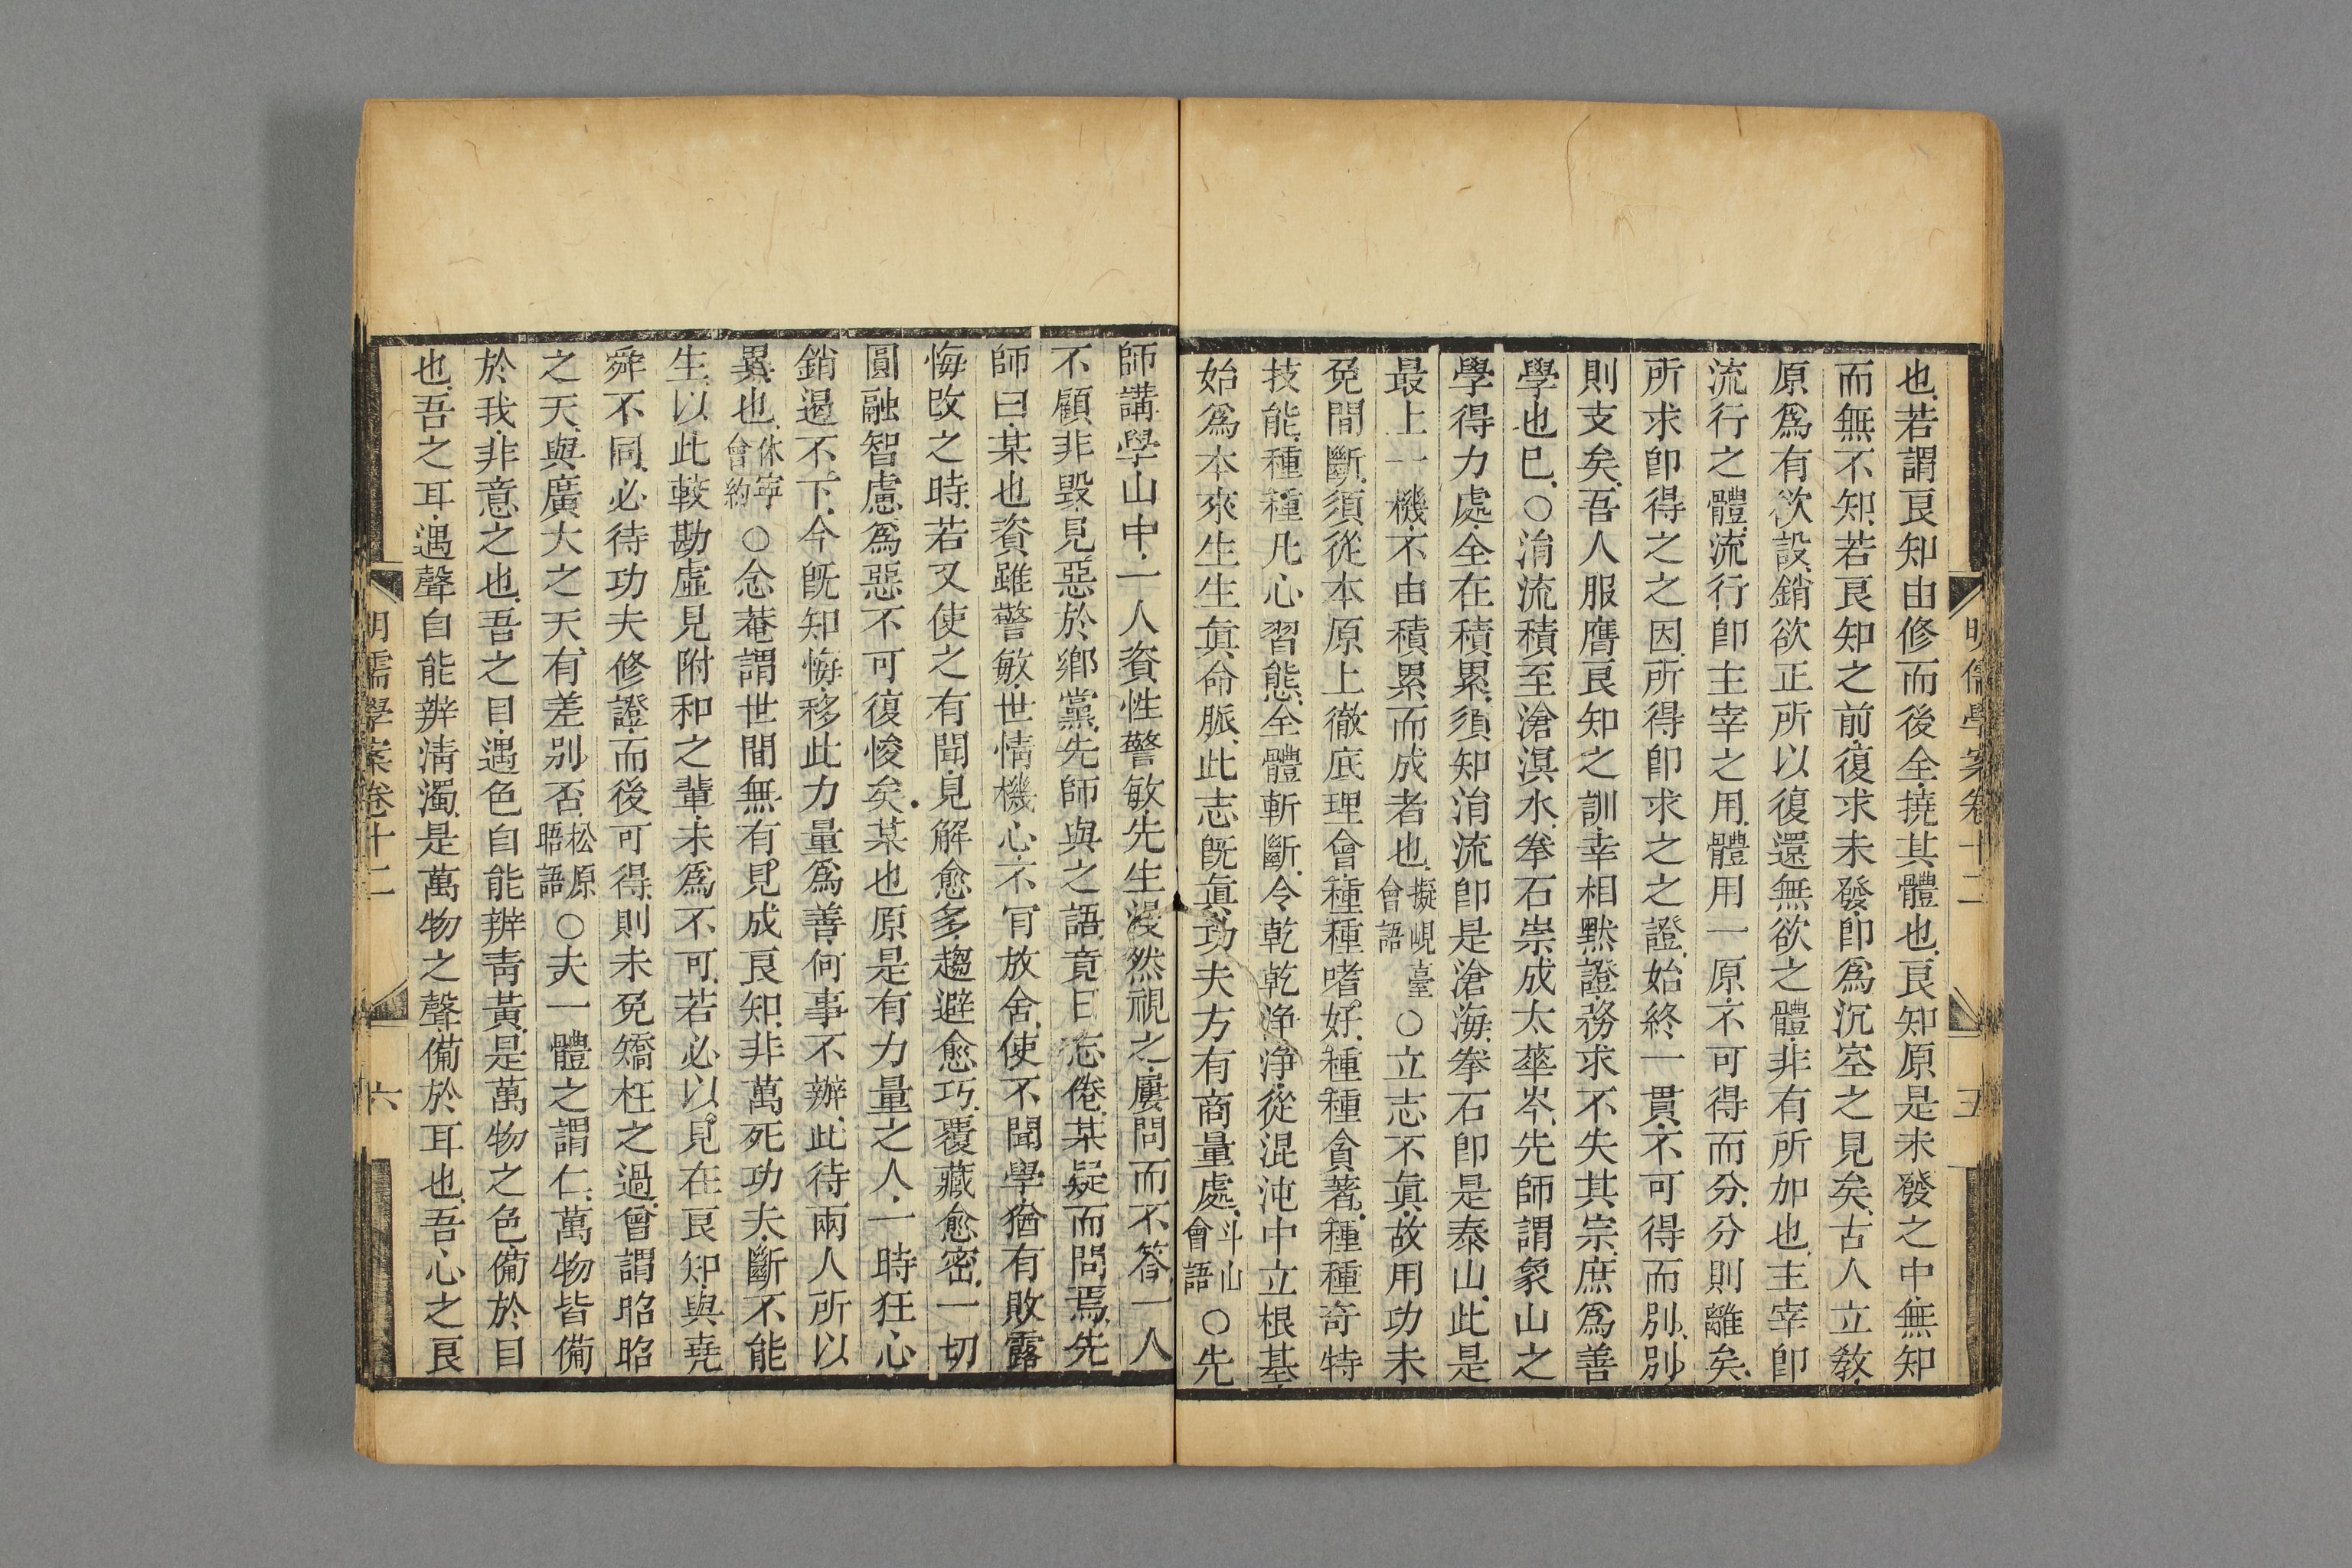 明儒學案卷十二 五
也若謂良知由修而後全撓其體也良知原是未發之中無知
而無不知若良知之前復求未發卽爲沉空之見矣古人立敎
原爲有欲設銷欲正所以復還無欲之體非有所加也主宰卽
流行之體流行卽主宰之用體用一原不可得而分分則離矣
所求卽得之之因所得卽求之之證始終一貫不可得而別別
則支矣吾人服膺良知之訓幸相默證務求不失其宗庶爲善
學也已○涓流積至滄溟水拳石崇成太華岑先師謂象山之
學得力處全在積累須知涓流卽是滄海拳石卽是泰山此是
最上一機不由積累而成者也擬峴臺會語○立志不眞故用功未
免間斷須從本原上徹底理會種種嗜好種種貪著種種奇特
技能種種凡心習態全體斬斷令乾乾淨淨從混沌中立根基
始爲本來生生眞命脈此志旣眞功夫方有商量處斗山會語○先
師講學山中一人資性警敏先生漫然視之屢問而不答一人
不顧非毀見惡於鄉黨先師與之語竟日忘倦某疑而問焉先
師曰某也資雖警敏世情機心不肯放舍使不聞學猶有敗露
悔改之時若又使之有聞見解愈多趨避愈巧覆藏愈密一切
圓融智慮爲惡不可復悛矣某也原是有力量之人一時狂心
銷遏不下今旣知悔移此力量爲善何事不辦此待兩人所以
異也休寧會約○念菴謂世間無有見成良知非萬死功夫斷不能
生以此較勘虛見附和之輩未爲不可若必以見在良知與堯
舜不同必待功夫修證而後可得則未免矯枉之過曾謂昭昭
之天與廣大之天有差別否松原晤語○夫一體之謂仁萬物皆備
於我非意之也吾之目遇色自能辨青黃是萬物之色備於目
也吾之耳遇聲自能辨淸濁是萬物之聲備於耳也吾心之良
明儒學案卷十二 六